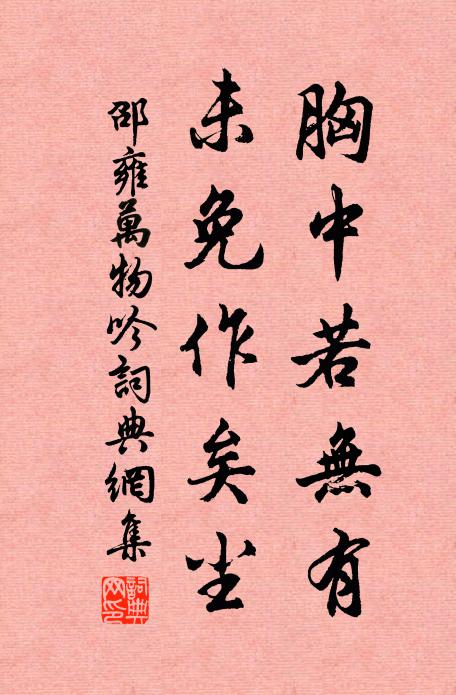 胸中若無有
未免作矣尘
邵雍萬物吟詞典網集
詞典
网印